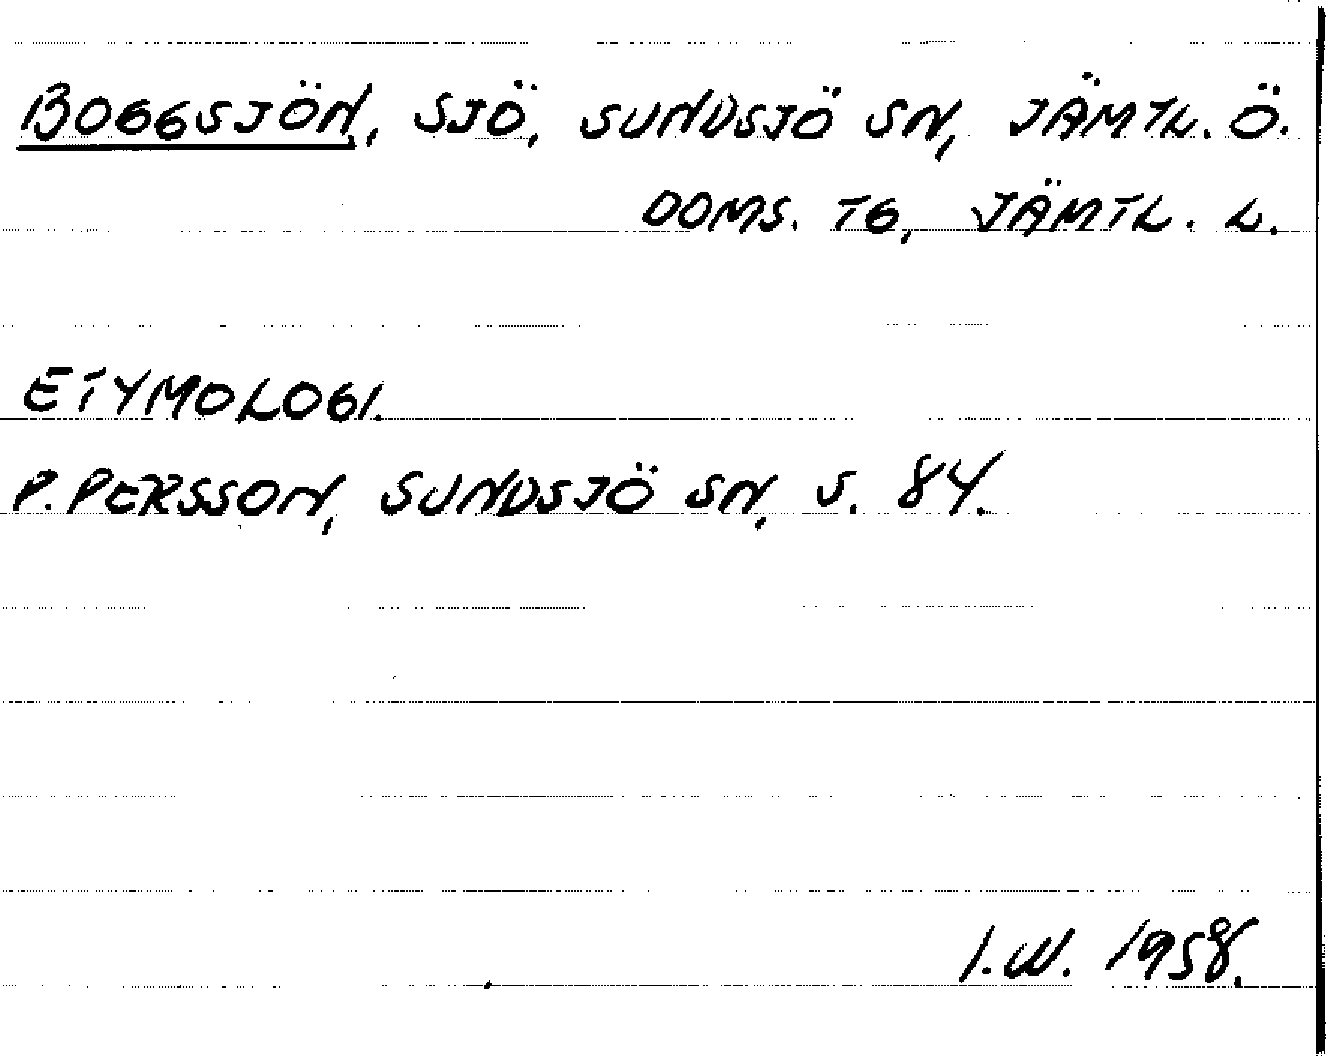 BOGGSJÖN, SJÖ, SUNDSJÖ SN, JÄMTL. Ö.
DOMS. TG, JÄMTL. L.
ETYMOLOGI.
P. PERSSON, SUNDSJÖ SN, S. 84.
I.W. 1958.